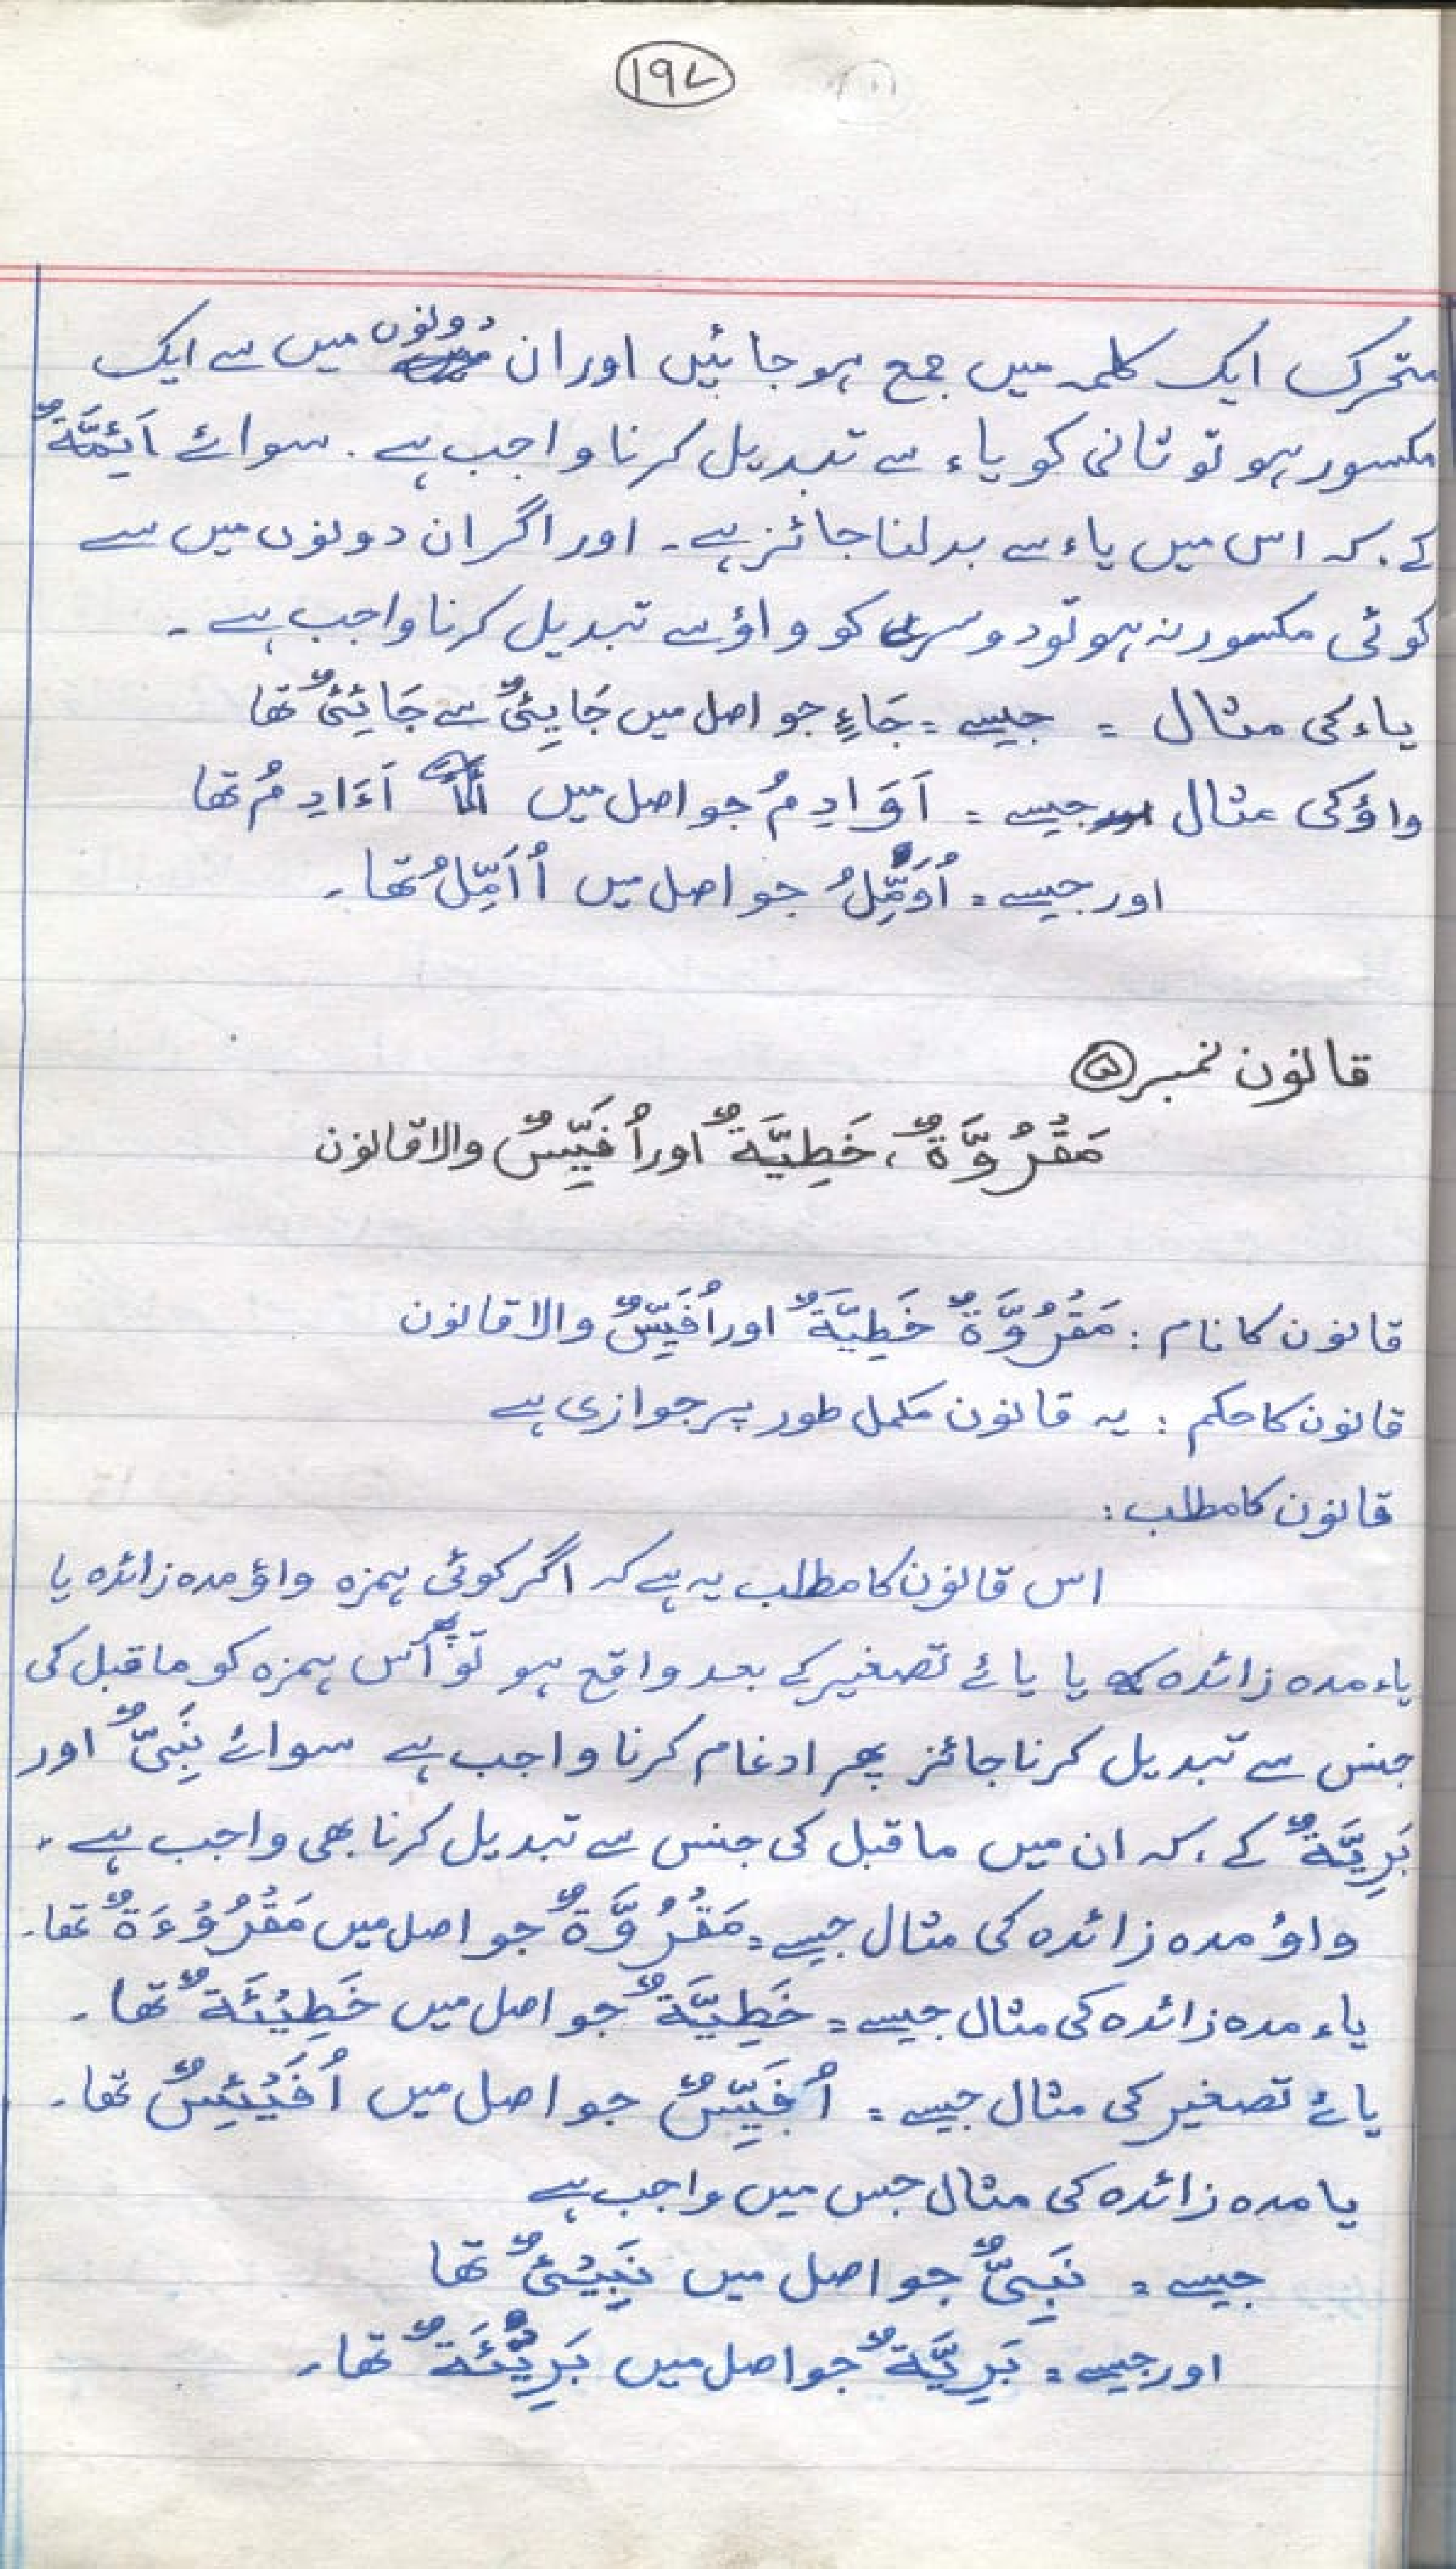 ۱۹۷
متحرک ایک کلمہ میں جمع ہو جائیں اور ان دونوں میں سے ایک
مکسور ہو تو ثانی کو یاء سے تبدیل کرنا واجب ہے . سوائے اَئِمَّةٌ
کے . کہ اس میں یاء سے بدلنا جائز ہے ۔ اور اگر ان دونوں میں سے
کوئی مکسور نہ ہو تو دوسری کو واؤ سے تبدیل کرنا واجب ہے ۔
یاء کی مثال = جیسے = جَاءٍ جو اصل میں جَايِئٌ سے جَائِئٌ تھا
واؤ کی مثال جیسے = اَوَادِمُ جو اصل میں اَءَادِمُ تھا
اور جیسے = اُوَمِّلُ جو اصل میں اُاَمِّلُ تھا ۔
قانون نمبر ۵
مَقْرُوَّةٌ ، خَطِيَّةٌ اور اُفَيِّسٌ والا قانون
قانون کا نام : مَقْرُوَّةٌ خَطِيَّةٌ اور اُفَيِّسٌ والا قانون
قانون کا حکم : یہ قانون مکمل طور پر جوازی ہے
قانون کا مطلب :
اس قانون کا مطلب یہ ہے کہ اگر کوئی ہمزہ واؤ مدہ زائدہ یا
یاء مدہ زائدہ یا یائے تصغیر کے بعد واقع ہو تو اس ہمزہ کو ماقبل کی
جنس سے تبدیل کرنا جائز پھر ادغام کرنا واجب ہے سوائے نَبِیٌّ اور
بَرِيَّةٌ کے ، کہ ان میں ماقبل کی جنس سے تبدیل کرنا بھی واجب ہے ،
واؤ مدہ زائدہ کی مثال جیسے = مَقْرُوَّةٌ جو اصل میں مَقْرُوْءَةٌ تھا ۔
یاء مدہ زائدہ کی مثال جیسے = خَطِيَّةٌ جو اصل میں خَطِيْئَةٌ تھا ۔
یائے تصغیر کی مثال جیسے = اُفَيِّسٌ جو اصل میں اُفَيْئِسٌ تھا ۔
یا مدہ زائدہ کی مثال جس میں واجب ہے
جیسے = نَبِیٌّ جو اصل میں نَبِيْئٌ تھا
اور جیسے = بَرِيَّةٌ جو اصل میں بَرِيْئَةٌ تھا ۔